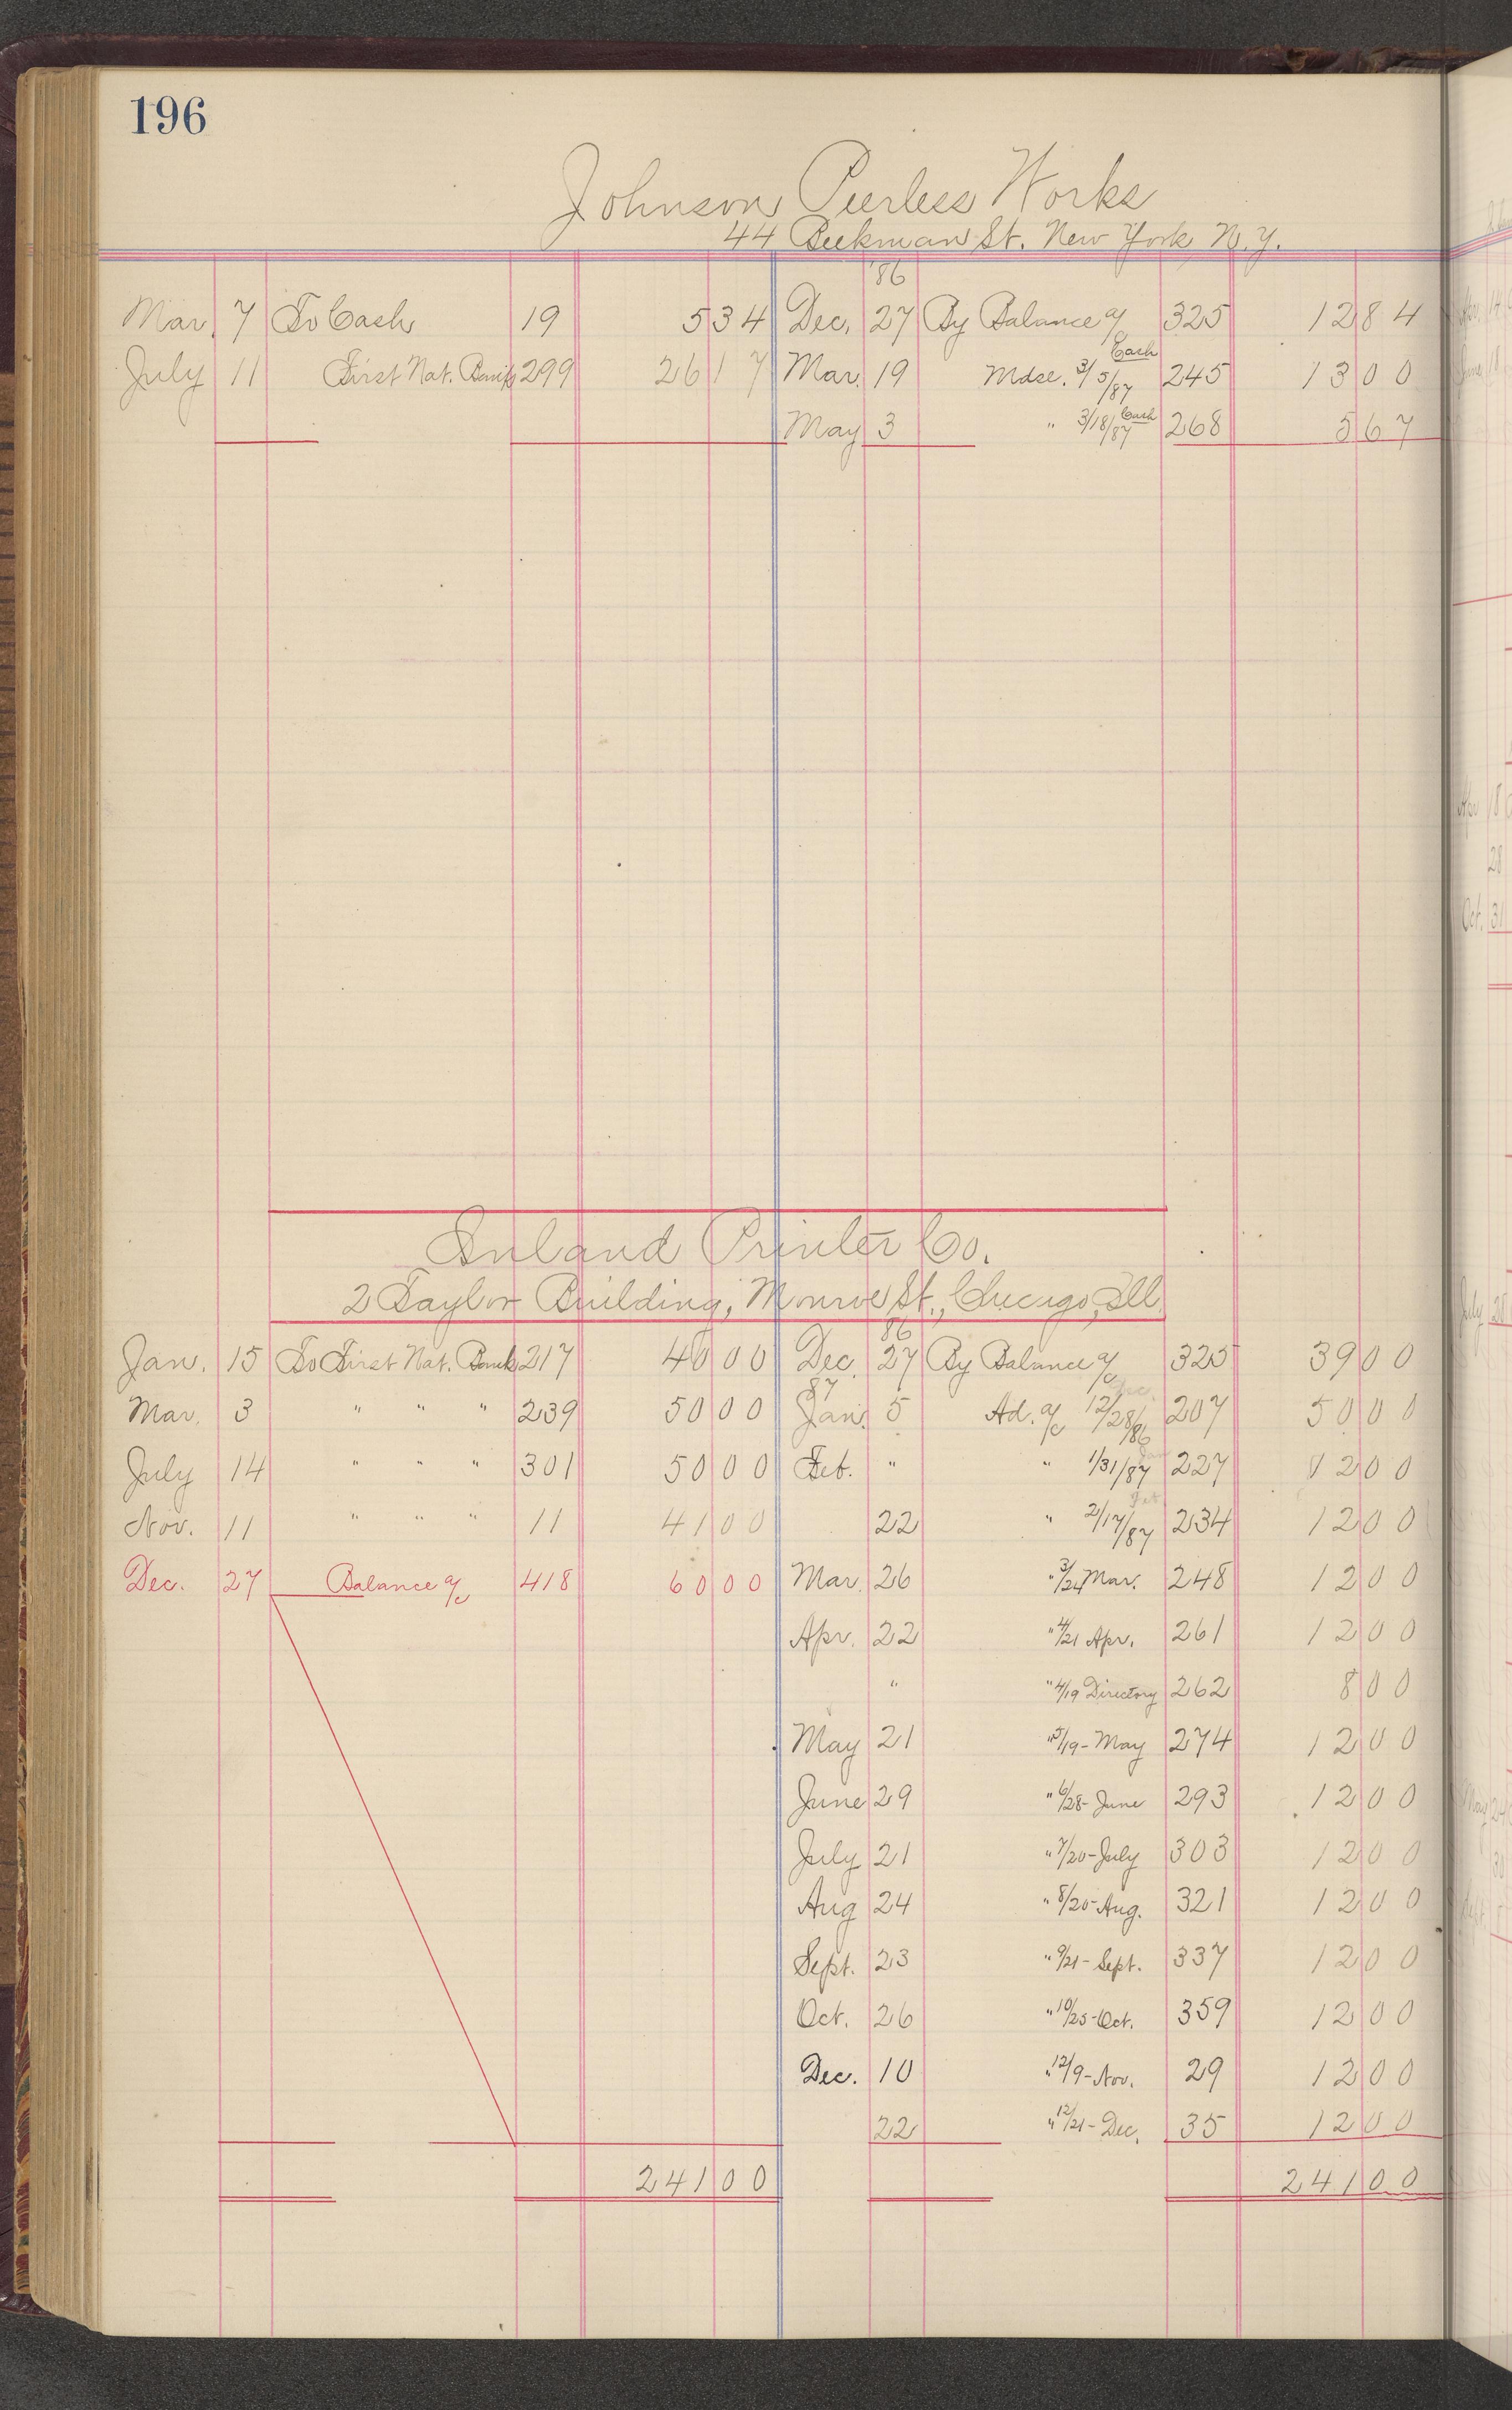 196
Johnson Peerless Works
44 Beekman St. New York, N.Y.
'86
Mar. 7 To Cash 19 5 34 Dec. 27 By Balance a/c 325 12 84
July 11 First Nat. Bank 299 26 17 Mar. 19 Mdse. 3/5/87 Cash 245 13 00
May 3 " 3/18/87 Cash 268 5 67
Inland Printer Co.
2 Taylor Building, Monroe St., Chicago, Ill.
86
Jan. 15 To First Nat. Bank 217 40 00 Dec. 27 By Balance a/c 325 39 00
87
Mar. 3 " " " 239 50 00 Jan. 5 Ad. a/c 12/28/86 Dec. 207 50 00
July 14 " " " 301 50 00 Feb. " " 1/31/87 Jan 227 12 00
Nov. 11 " " " 11 41 00 22 " 2/17/87 Feb. 234 12 00
Dec. 27 Balance a/c 418 60 00 Mar. 26 " 3/24 Mar. 248 12 00
Apr. 22 " 4/21 Apr. 261 12 00
" " 4/19 Directory 262 8 00
May 21 " 5/19 - May 274 12 00
June 29 " 6/28 - June 293 12 00
July 21 " 7/20 - July 303 12 00
Aug 24 " 8/20 - Aug. 321 12 00
Sept. 23 " 9/21 - Sept. 337 12 00
Oct. 26 " 10/25 - Oct. 359 12 00
Dec. 10 " 12/9 - Nov. 29 12 00
22 " 12/21 - Dec. 35 12 00
241 00 241 00